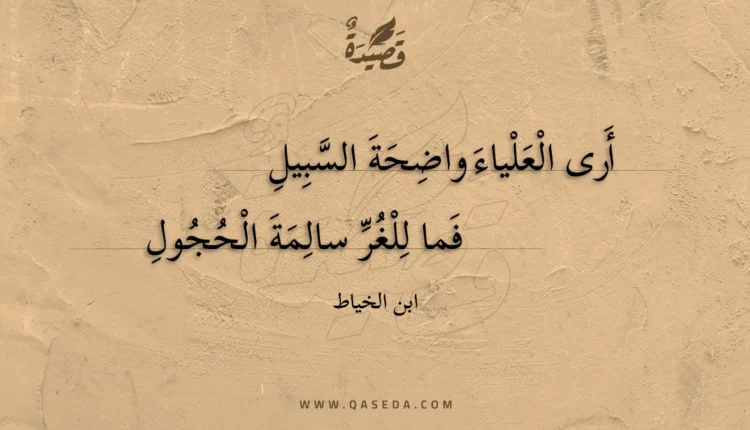 قَصِيدَةٌ
أَرى الْعَلْياءَ واضِحَةَ السَّبِيلِ
فَما لِلْغُرِّ سالِمَةَ الْحُجُولِ
ابن الخياط
WWW.QASEDA.COM